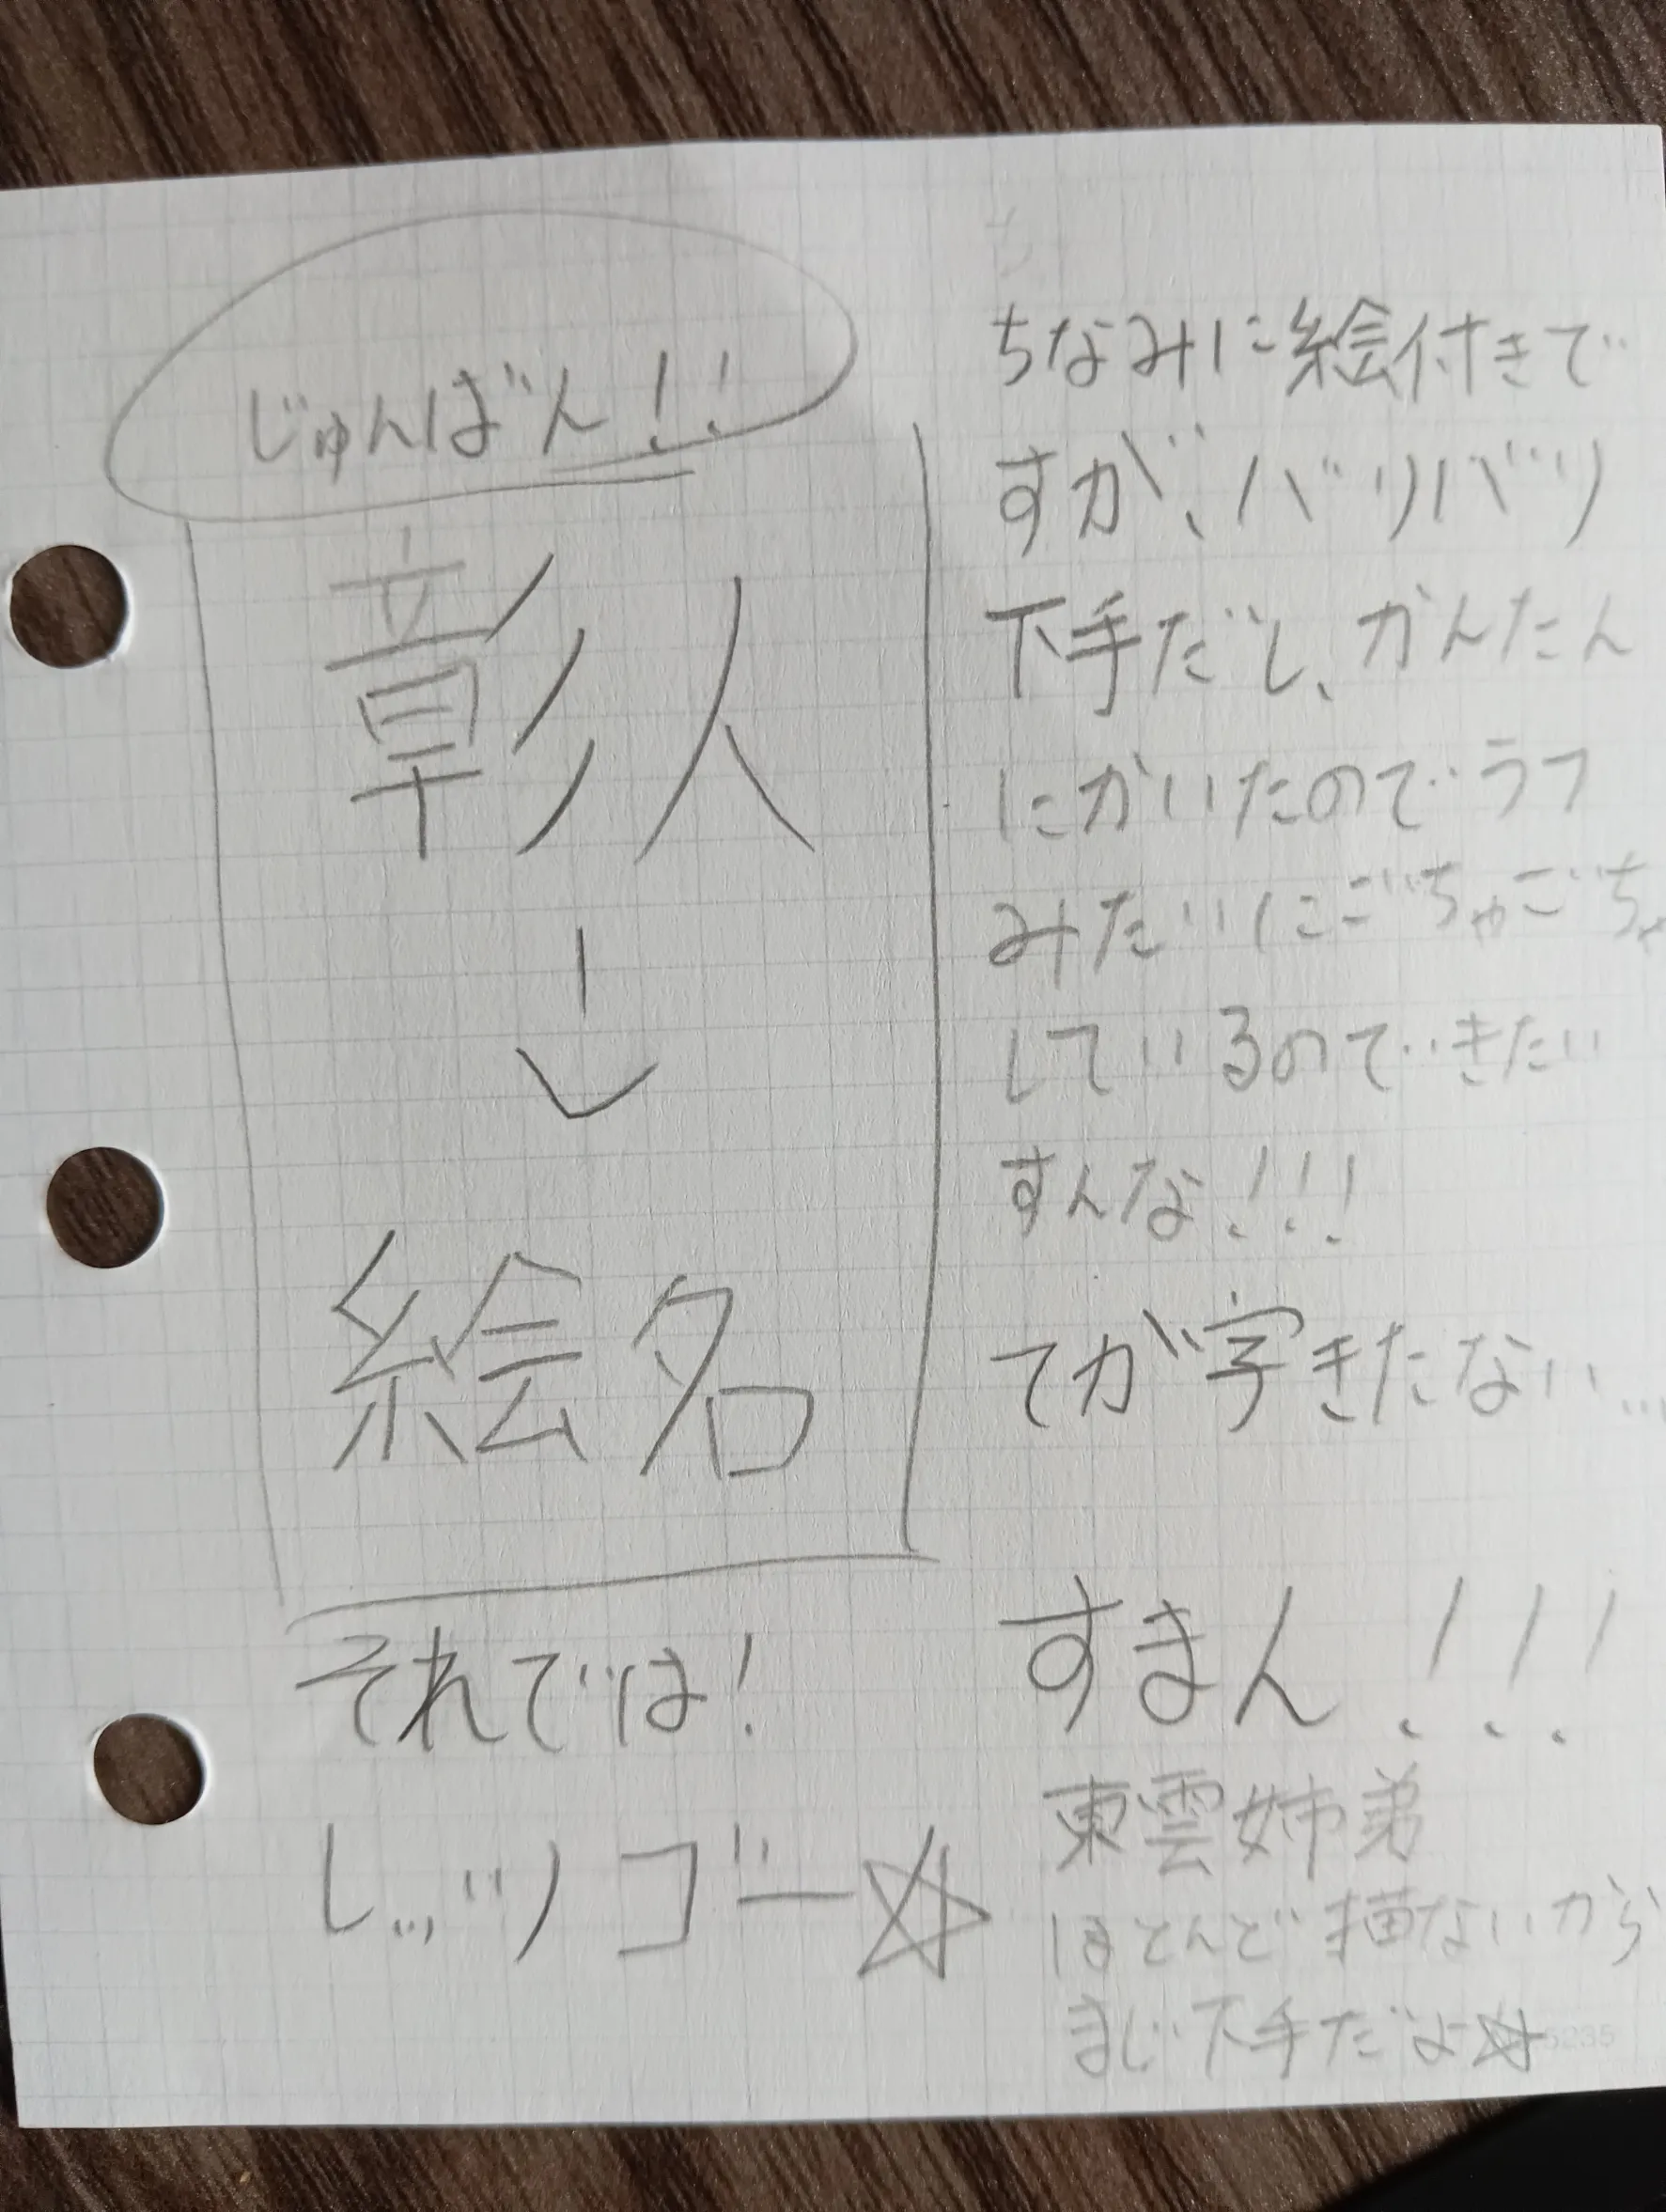 じゅんばん!!
彰人
↓
絵名
それでは!
レッツゴー☆
ちなみに絵付きで
すが、バリバリ
下手だし、かんたん
にかいたのでラフ
みたいにごちゃごちゃ
しているのできたい
すんな!!!
てが字きたない...
すまん!!!
東雲姉弟
ほとんど描ないから
まじ下手だよ☆
5235